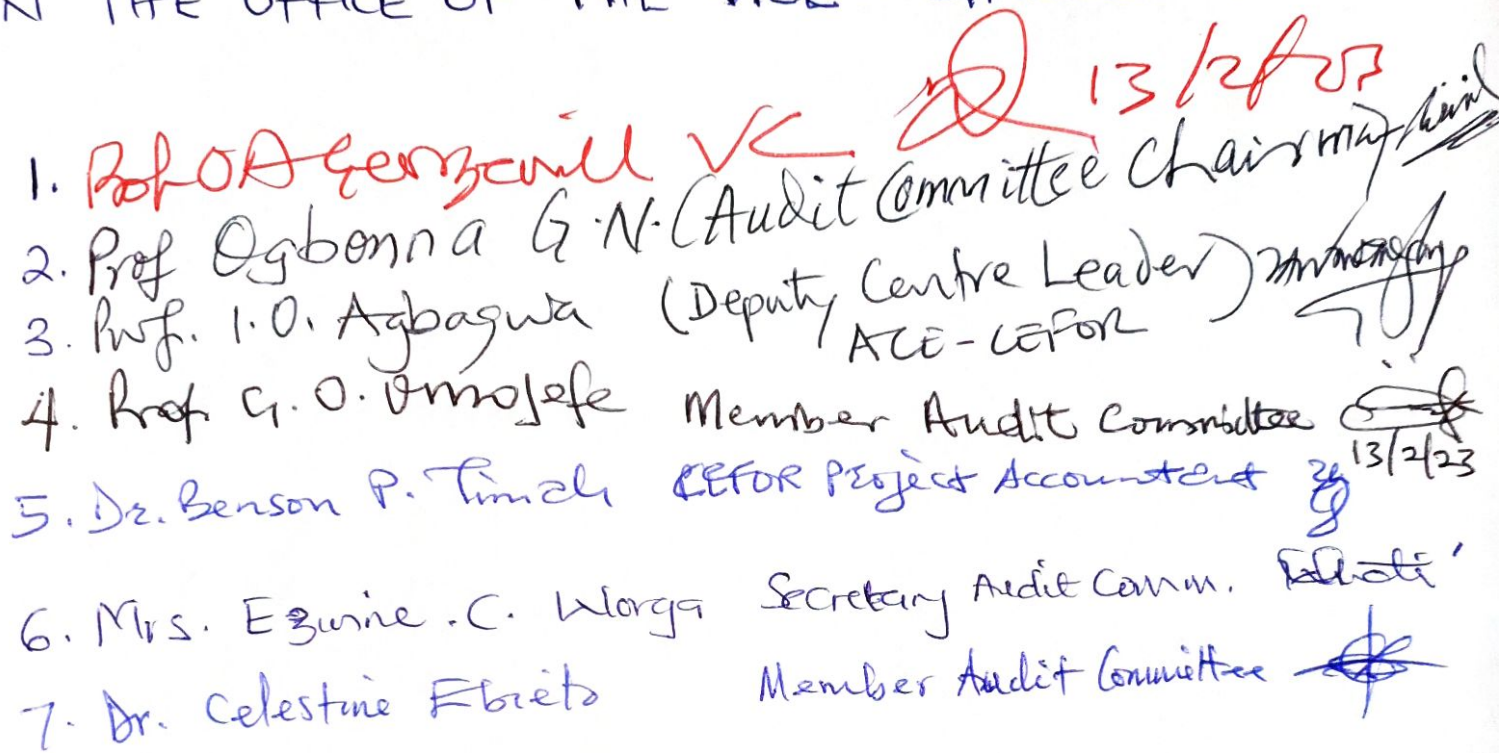 N THE OFFICE OF THE
1. Prof OA Georgewill VC 13/2/23
2. Prof Ogbonna G.N. (Audit Committee Chairman)
3. Prof. I.O. Agbagwa (Deputy Centre Leader)
ACE-CEFOR
4. Prof. G. O. Omojefe Member Audit Committee
13/2/23
5. Dr. Benson P. CEFOR Project Accountant
6. Mrs. Ezurine .C. Worga Secretary Audit Comm.
7. Dr. Celestine Ebieto Member Audit Committee